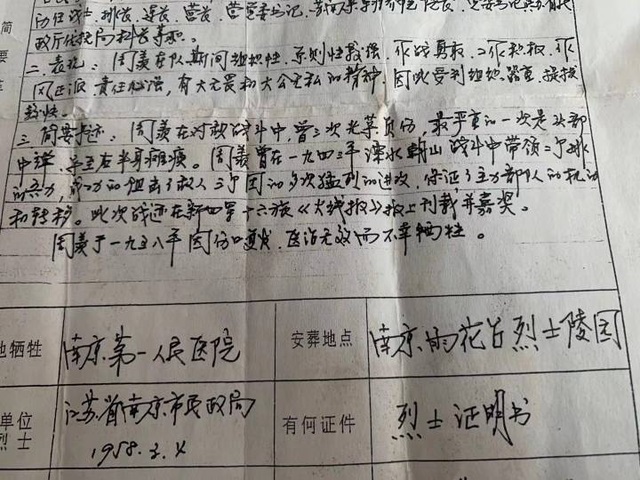 历任战士、排长、连长、营长、营党委书记、
政厅优抚局科长等职。
简
要
二、表现：周义在部队期间组织性、原则性较强，作战勇敢，工作积极，作
风正派，责任心强，有大无畏和大公无私的精神，因此受到组织器重，提拔
较快。
三、简要事迹：周义在对敌战斗中，曾三次光荣负伤，最严重的一次是头部
中弹，导至右半身瘫痪。周义曾在一九四三年溧水 山战斗中带领二个排
的兵力，成功的阻击了敌人三个团的多次猛烈的进攻，保证了主力部队的机动
和转移。此次战迹在新四军十六旅《火线报》报上刊载并嘉奖。
周义于一九五八年因伤口复发，医治无效而不幸牺牲。
地牺牲
南京第一人民医院
安葬地点
南京雨花台烈士陵园
单位
烈士
江苏省南京市民政局
1958.3.4
有何证件
烈士证明书